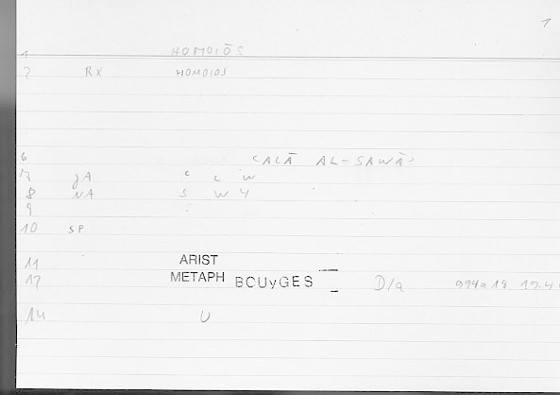 1
1 HOMOIŌS
2 RX HOMOIOS
6 ʿALĀ AL-SAWĀʾ
7 gA ʿ L W
8 NA S W Y
9
10 SP
11 ARIST
12 METAPH BOUyGES D/a 994a18
14 U